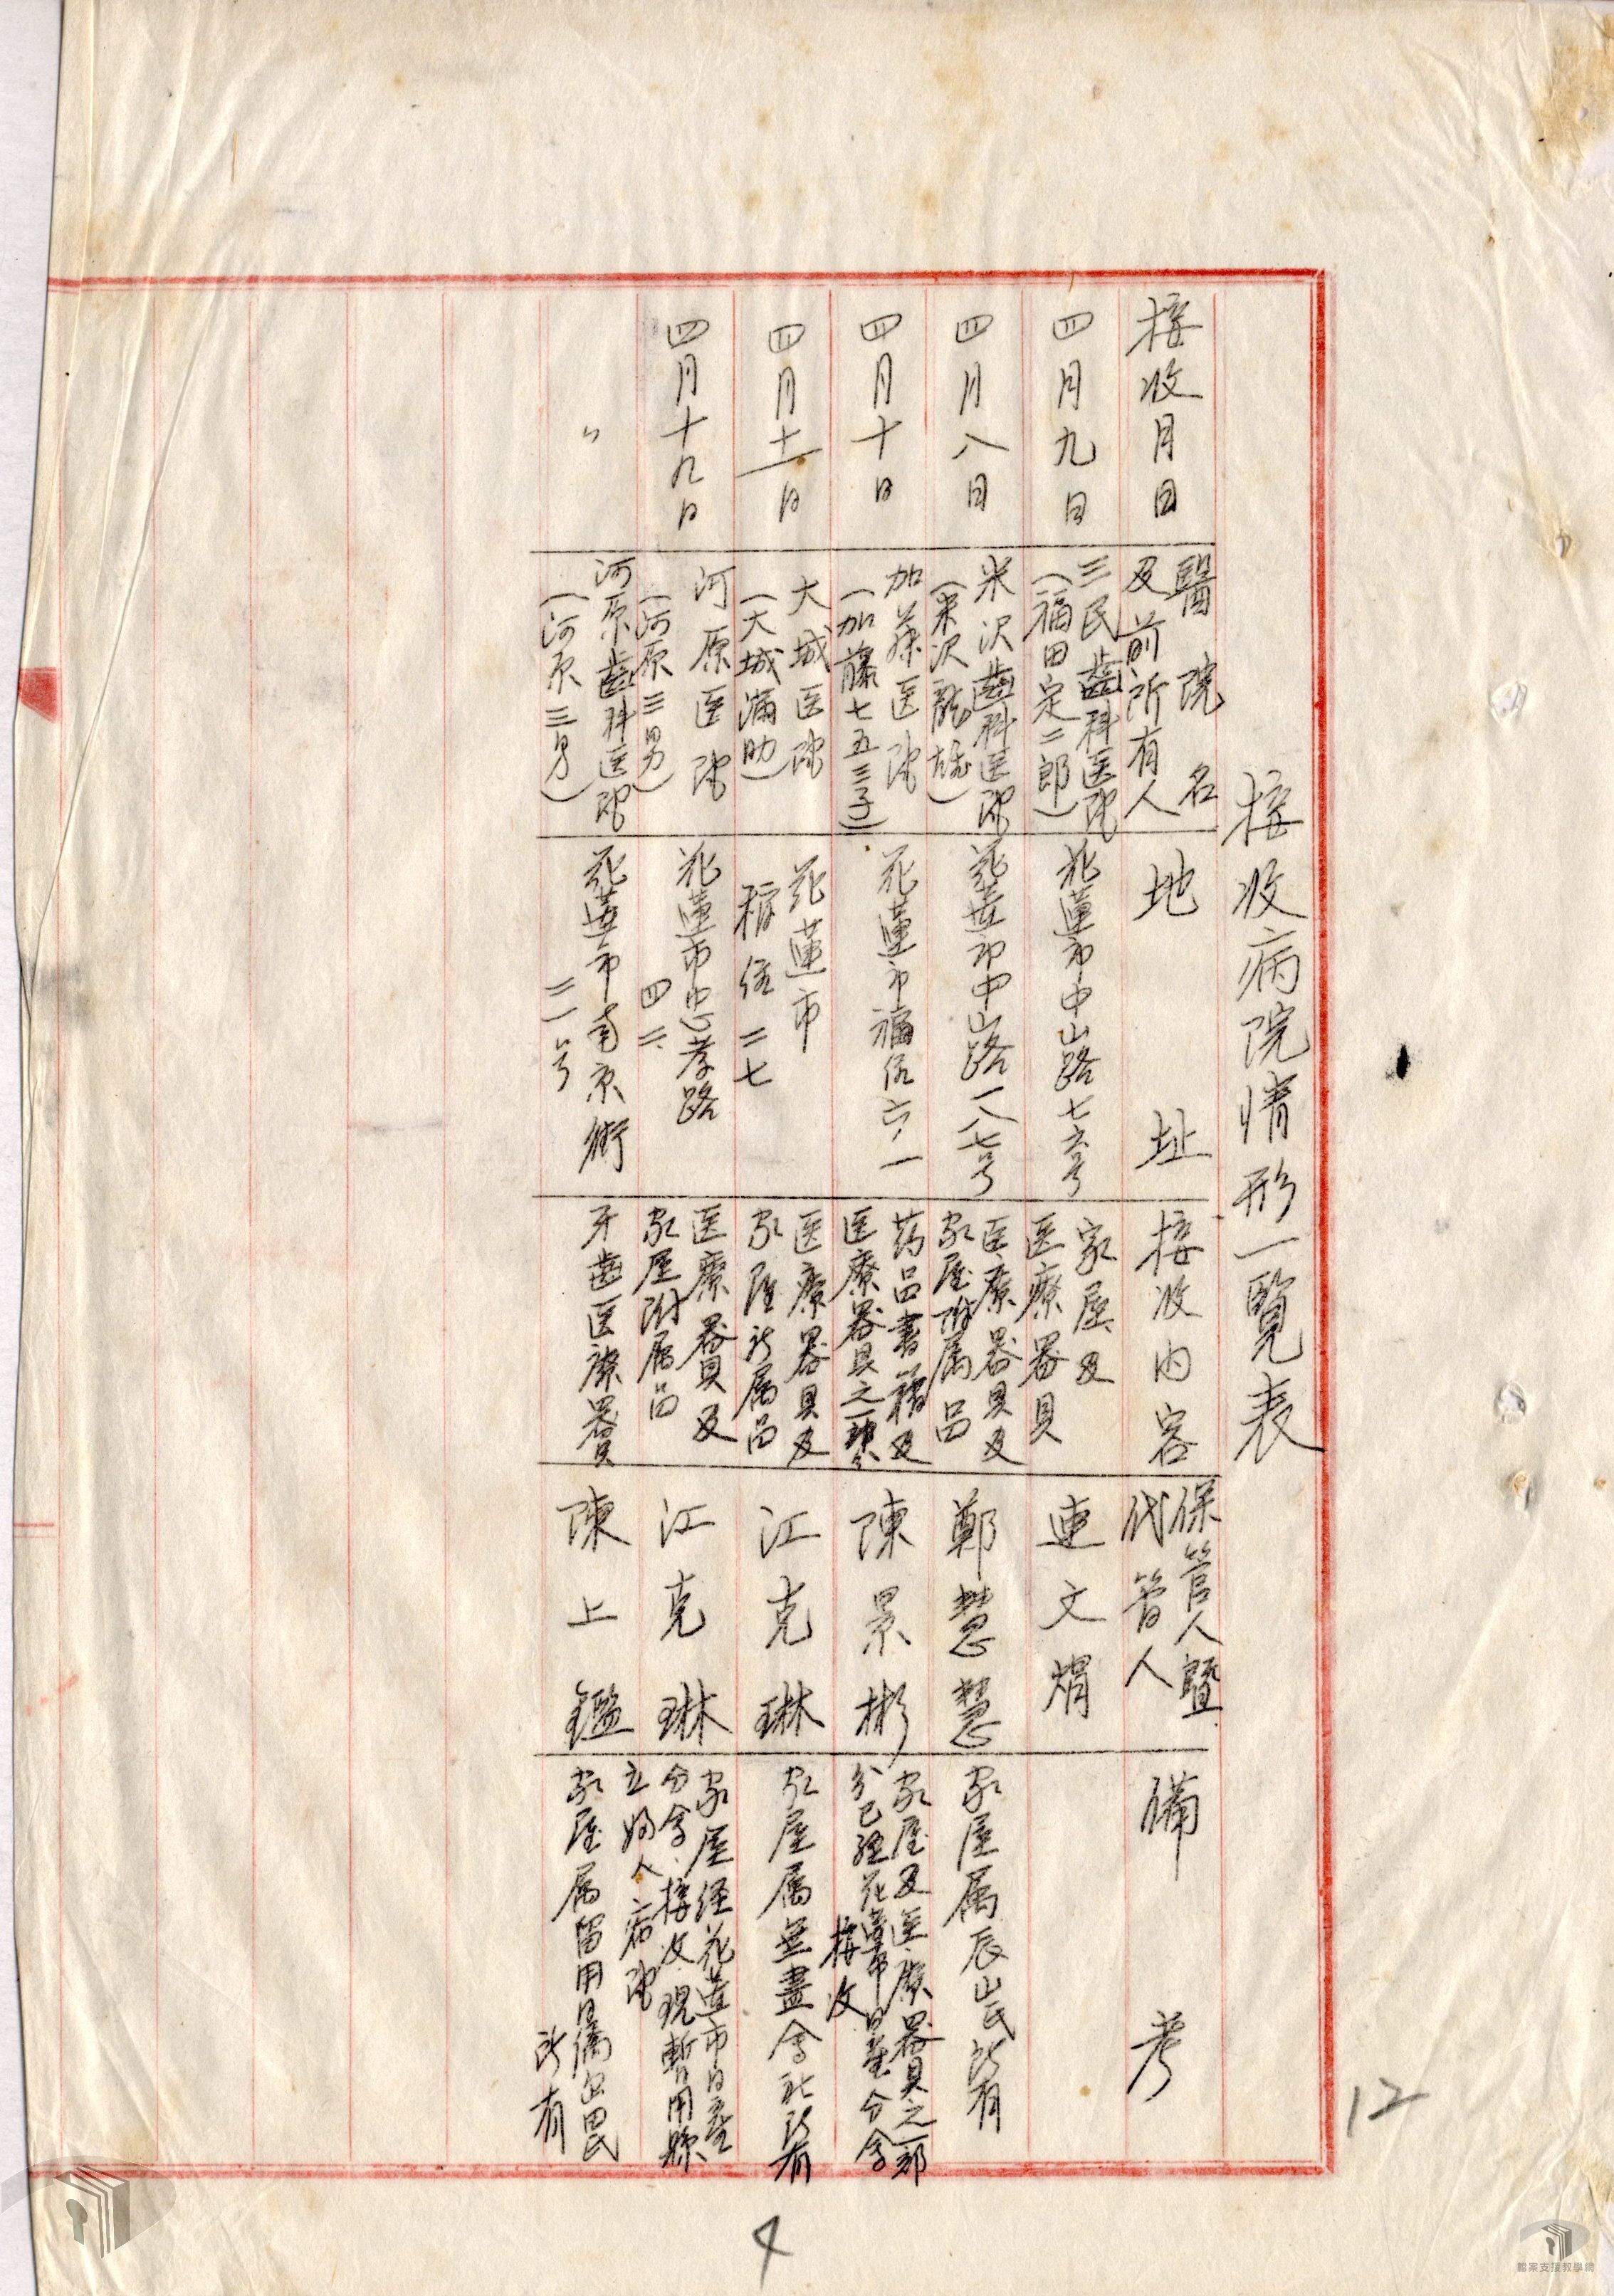 接收病院情形一覽表
接收月日
醫院名
及前所有人
地址
接收内容
保管人暨
代管人
備考
四月九日
三民齒科医院
(福田定二郎)
花蓮市中山路七六号
家屋及
医療器具
連文焆
四月八日
米沢齒科医院
(米沢龍雄)
花蓮市中山路一八七号
医療器具及
家屋附属品
鄭慧慧
家屋属辰山氏所有
四月十日
加藤医院
(加藤七五三子)
花蓮市福住六、一
葯品書籍及
医療器具之一部分
陳景彬
家屋及医療器具之一部
分已経花蓮市日産分会
接收
四月十一日
大城医院
(大城満助)
花蓮市
稲住二七
医療器具及
家屋所属品
江克琳
家屋属無盡会社所有
四月十九日
河原医院
(河原三男)
花蓮市忠孝路
四二
医療器具及
家屋附属品
江克琳
家屋経花蓮市日産
分会接收現暫用縣
立婦人病院
〃
河原齒科医院
(河原三男)
花蓮市南京街
二一号
牙齒医療器具
陳上鑑
家屋属留用日僑
所有
12
4
檔案支援教學網